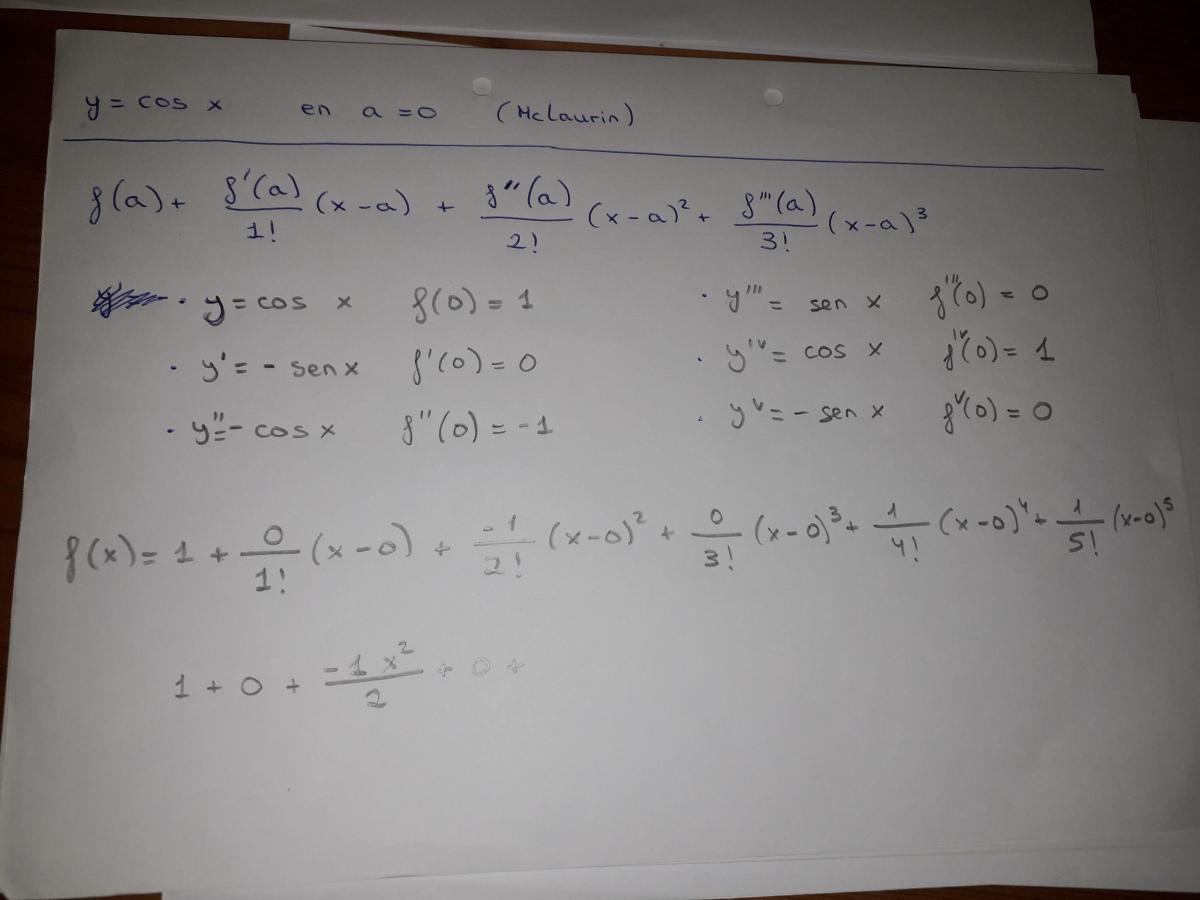 y = cos x en a = 0 (McLaurin)
f(a) + f'(a)/1! (x-a) + f''(a)/2! (x-a)² + f'''(a)/3! (x-a)³
· y = cos x f(0) = 1 · y''' = sen x f'''(0) = 0
· y' = - sen x f'(0) = 0 · y'ᵛ = cos x f'ᵛ(0) = 1
· y'' = - cos x f''(0) = -1 · yᵛ = - sen x fᵛ(0) = 0
f(x) = 1 + 0/1! (x-0) + -1/2! (x-0)² + 0/3! (x-0)³ + 1/4! (x-0)⁴ + 1/5! (x-0)⁵
1 + 0 + -1 x²/2 + 0 +